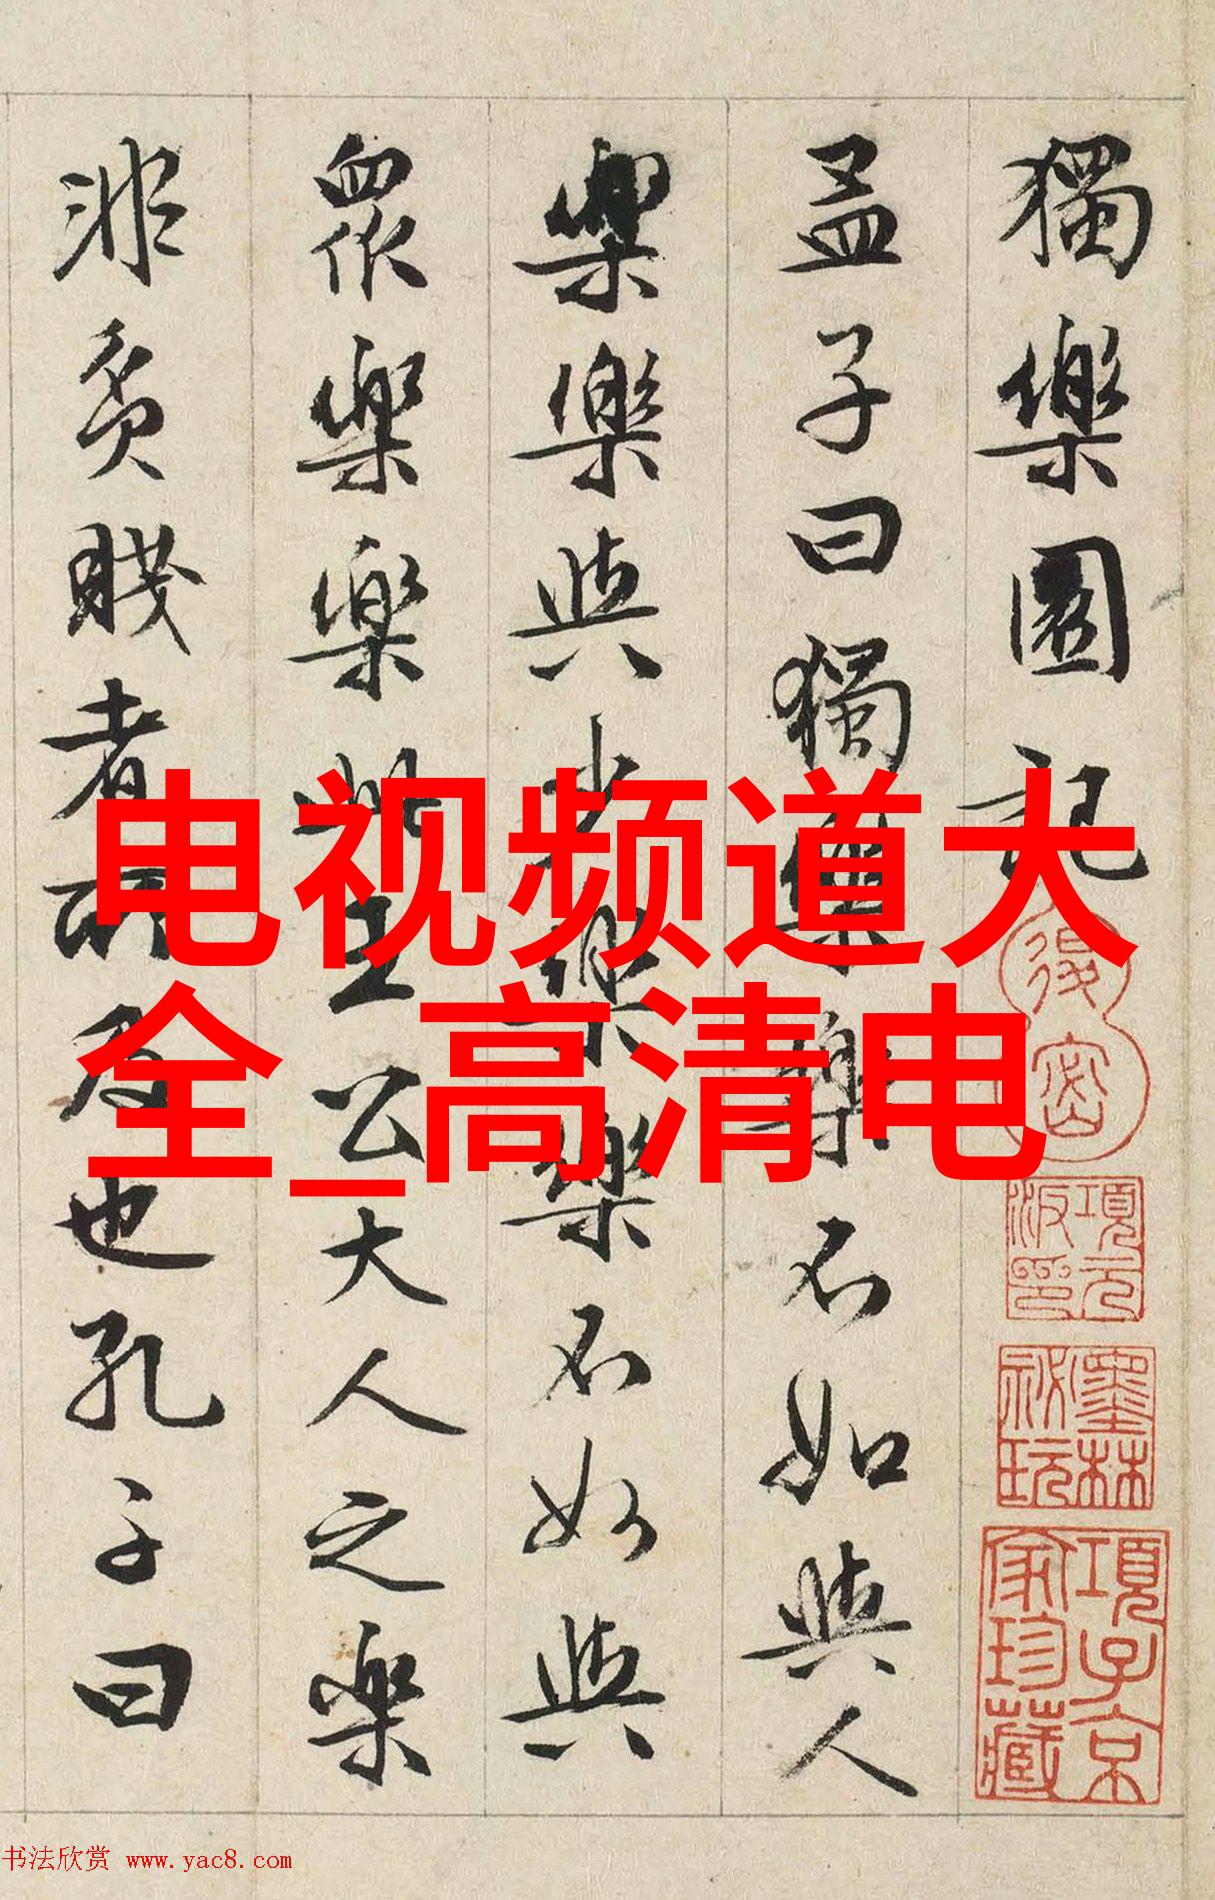 獨樂園記
孟子曰獨樂樂不如與人
樂樂與少樂樂不如與
眾樂樂此王公大人之樂
非貧賤者所及也孔子曰
电视频道大
全_高清电
退密
項元汴印
墨林秘玩
項子京家珍藏
书法欣赏 www.yac8.com